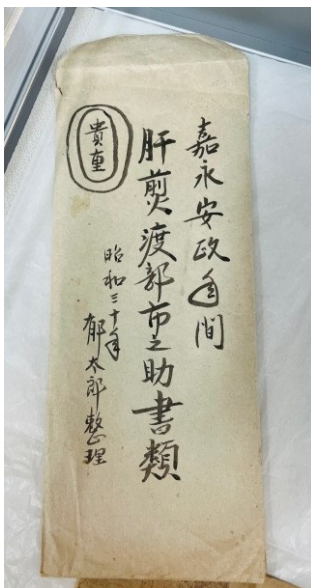 嘉永安政年間
肝煎渡部市之助書類
昭和三十年
郁太郎整理
貴重